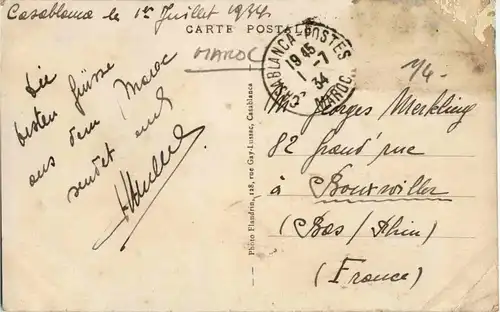 Casablanca le 1er Juillet 1934
CARTE POSTALE
MAROC
CASABLANCA-POSTES
1945
1-7
34
MAROC
Die
besten Grüsse
aus dem Maroc
sendet euch
Photo Flandrin, 128, rue Gay-Lussac, Casablanca
Mr Georges Merkling
82 grand'rue
à Bouxwiller
(Bas/Rhin)
(France)